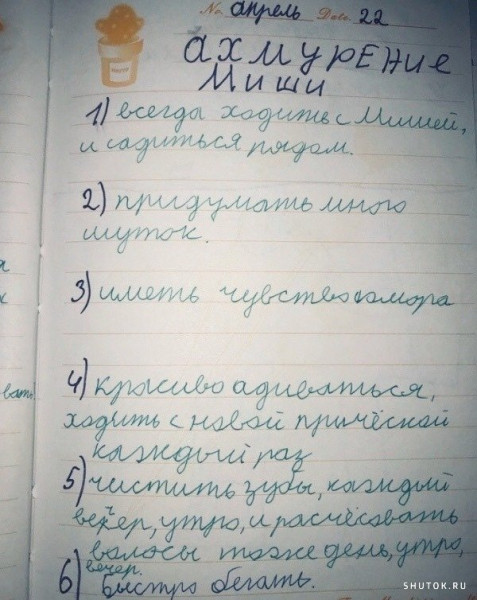 No апрель Date 22
АХМУРЕНИЕ
Миши
1) всегда ходить с Мишей,
и садиться рядом.
2) придумать много
шуток.
3) иметь чувство юмора
4) красиво адиваться,
ходить с новой причёской
каждый раз
5) чистить зубы, каждый
вечер, утро, и расчёсовать
волосы тоже день, утро,
вечер.
6) быстро бегать.
вать
SHUTOK.RU